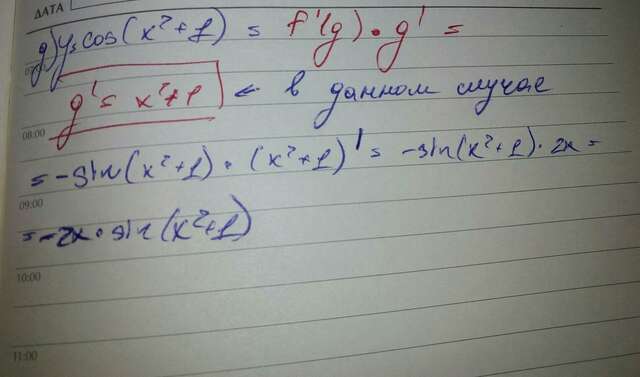 ДАТА
g) y = cos(x²+1) = f'(g) • g' =
g' = x²+1 ← в данном случае
08:00
= -sin(x²+1) • (x²+1)' = -sin(x²+1) · 2x =
09:00
= -2x • sin(x²+1)
10:00
11:00